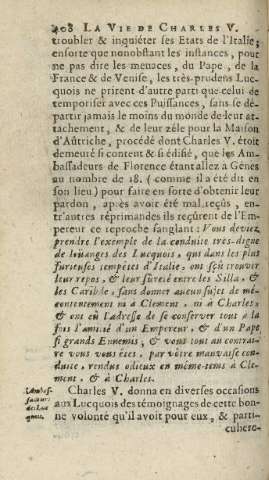 408 LA VIE DE CHARLES V.
troubler & inquiéter ses Etats de l'Italie;
ensorte que nonobstant les instances, pour
ne pas dire les menaces, du Pape, de la
France & de Venise, les très-prudens Luc-
quois ne prirent d'autre parti que celui de
temporiser avec ces Puissances, sans se dé-
partir jamais le moins du monde de leur at-
tachement, & de leur zéle pour la Maison
d'Aûtriche, procédé dont Charles V. étoit
demeuré si content & si édifié, que les Am-
bassadeurs de Florence étant allez à Génes
au nombre de 18. (comme il a été dit en
son lieu) pour faire en sorte d'obtenir leur
pardon, après avoir été mal reçus, en-
tr'autres réprimandes ils reçûrent de l'Em-
pereur ce reproche sanglant: Vous deviez
prendre l'exemple de la conduite très-digne
de loüanges des Lucquois, qui dans les plus
furieuses tempétes d'Italie, ont sçû trouver
leur repos, & leur sûreté entre les Silla, &
les Caribde, sans donner aucun sujet de mé-
contentement ni à Clement, ni à Charles,
& ont eû l'adresse de se conserver tout à la
fois l'amitié d'un Empereur, & d'un Pape
si grands Ennemis, & vous tout au contrai-
re vous vous êtes, par vôtre mauvaise con-
duite, rendus odieux en même-tems à Cle-
ment, & à Charles.
L'Ambas-
sadeur
de Luc-
ques.
Charles V. donna en diverses occasions
aux Lucquois des témoignages de cette bon-
ne volonté qu'il avoit pour eux, & parti-
culiere-